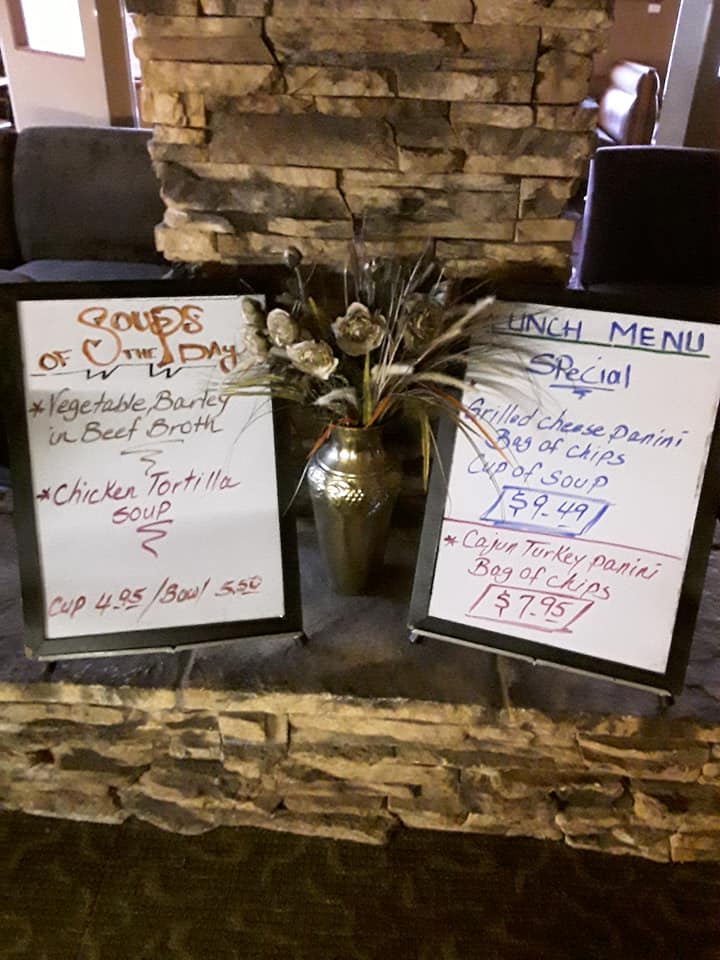 SOUPS
OF THE DAY
*Vegetable, Barley
in Beef Broth
*Chicken Tortilla
SOUP
Cup 4.95/Bowl 5.50
LUNCH MENU
Special
Grilled cheese panini
Bag of chips
Cup of Soup
$9.49
* Cajun Turkey panini
Bag of chips
$7.95